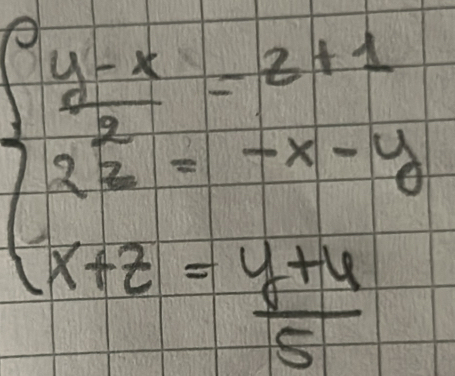 y-x/2 = z+1
2z = -x-y
x+z = y+4/5